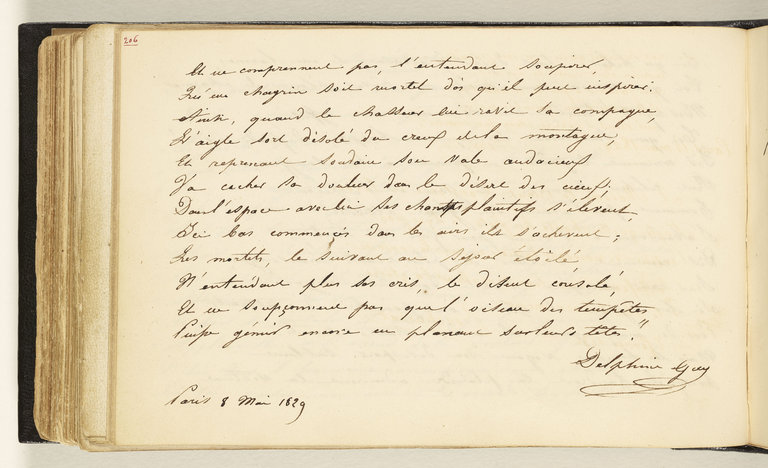 206
Et ne comprennent pas, l'entendant soupirer,
Qu'un chagrin soit mortel dès qu'il peut inspirer.
Ainsi, quand le chasseur lui ravit sa compagne,
L'aigle sort désolé du creux de la montagne;
Et reprenant soudain son vole audacieux
Va cacher sa douleur dans le désert des cieux;
Dans l'espace avec lui ses chants plaintifs s'élèvent.
Ici bas commencés dans les airs ils s'achèvent;
Les mortels, le suivant au séjour étoilé
N'entendant plus ses cris, le disent consolé,
Et ne soupçonnent pas que l'oiseau des tempêtes
Puisse gémir encore en planant sur leurs têtes."
Delphine Gay
Paris 8 Mai 1829